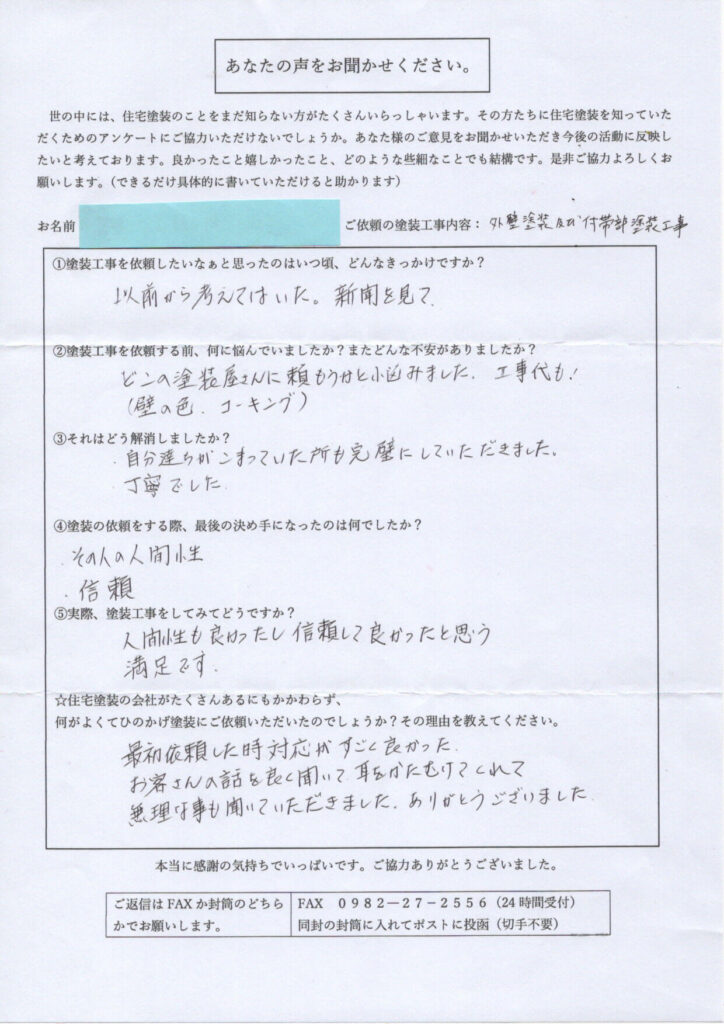 あなたの声をお聞かせください。
世の中には、住宅塗装のことをまだ知らない方がたくさんいらっしゃいます。その方たちに住宅塗装を知っていた
だくためのアンケートにご協力いただけないでしょうか。あなた様のご意見をお聞かせいただき今後の活動に反映し
たいと考えております。良かったこと嬉しかったこと、どのような些細なことでも結構です。是非ご協力よろしくお
願いします。（できるだけ具体的に書いていただけると助かります）
お名前 ご依頼の塗装工事内容： 外壁塗装及び付帯部塗装工事
①塗装工事を依頼したいなぁと思ったのはいつ頃、どんなきっかけですか？
以前から考えてはいた。新聞を見て
②塗装工事を依頼する前、何に悩んでいましたか？またどんな不安がありましたか？
どこの塗装屋さんに頼もうかと みました。工事代も！
（壁の色．コーキング）
③それはどう解消しましたか？
・自分達がこまっていた所も完璧にしていただきました。
・丁寧でした
④塗装の依頼をする際、最後の決め手になったのは何でしたか？
・その人の人間性
・信頼
⑤実際、塗装工事をしてみてどうですか？
人間性も良かったし信頼して良かったと思う
満足です．
☆住宅塗装の会社がたくさんあるにもかかわらず、
何がよくてひのかげ塗装にご依頼いただいたのでしょうか？その理由を教えてください。
最初依頼した時対応がすごく良かった
お客さんの話を良く聞いて耳をかたむけてくれて
無理な事も聞いていただきました．ありがとうございました
本当に感謝の気持ちでいっぱいです。ご協力ありがとうございました。
ご返信は FAX か封筒のどちら
かでお願いします。
FAX ０９８２－２７－２５５６（24 時間受付）
同封の封筒に入れてポストに投函（切手不要）